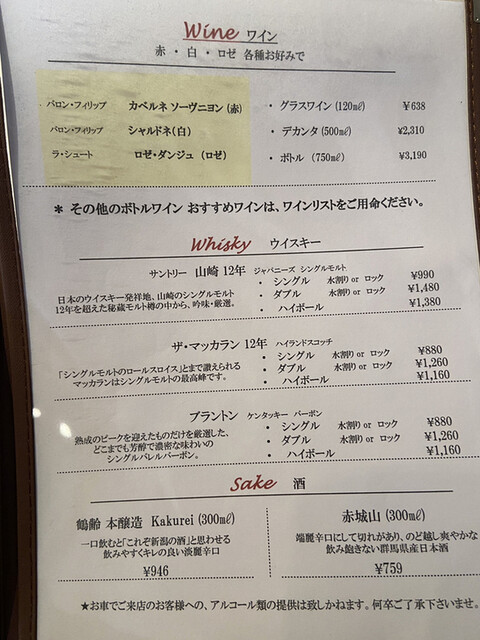 Wine ワイン
赤 ・ 白 ・ ロゼ 各種お好みで
バロン・フィリップ カベルネ ソーヴニヨン (赤) ・ グラスワイン (120㎖) ¥638
バロン・フィリップ シャルドネ(白) ・ デカンタ (500㎖) ¥2,310
ラ・シュート ロゼ・ダンジュ (ロゼ) ・ ボトル (750㎖) ¥3,190
* その他のボトルワイン おすすめワインは、ワインリストをご用命ください。
Whisky ウイスキー
サントリー 山崎 12年 ジャパニーズ シングルモルト
・ シングル 水割り or ロック ¥990
日本のウイスキー発祥地、山崎のシングルモルト
・ ダブル 水割り or ロック ¥1,480
12年を超えた秘蔵モルト樽の中から、吟味・厳選。
・ ハイボール ¥1,380
ザ・マッカラン 12年 ハイランドスコッチ
・ シングル 水割り or ロック ¥880
「シングルモルトのロールスロイス」とまで讃えられる
・ ダブル 水割り or ロック ¥1,260
マッカランはシングルモルトの最高峰です。
・ ハイボール ¥1,160
ブラントン ケンタッキー バーボン
・ シングル 水割り or ロック ¥880
熟成のピークを迎えたものだけを厳選した、
・ ダブル 水割り or ロック ¥1,260
どこまでも芳醇で濃密な味わいの
・ ハイボール ¥1,160
シングルバレルバーボン。
Sake 酒
鶴齢 本醸造 Kakurei (300㎖)
一口飲むと「これぞ新潟の酒」と思わせる
飲みやすくキレの良い淡麗辛口
¥946
赤城山 (300㎖)
端麗辛口にして切れがあり、のど越し爽やかな
飲み飽きない群馬県産日本酒
¥759
★お車でご来店のお客様への、アルコール類の提供は致しかねます。何卒ご了承下さいませ。